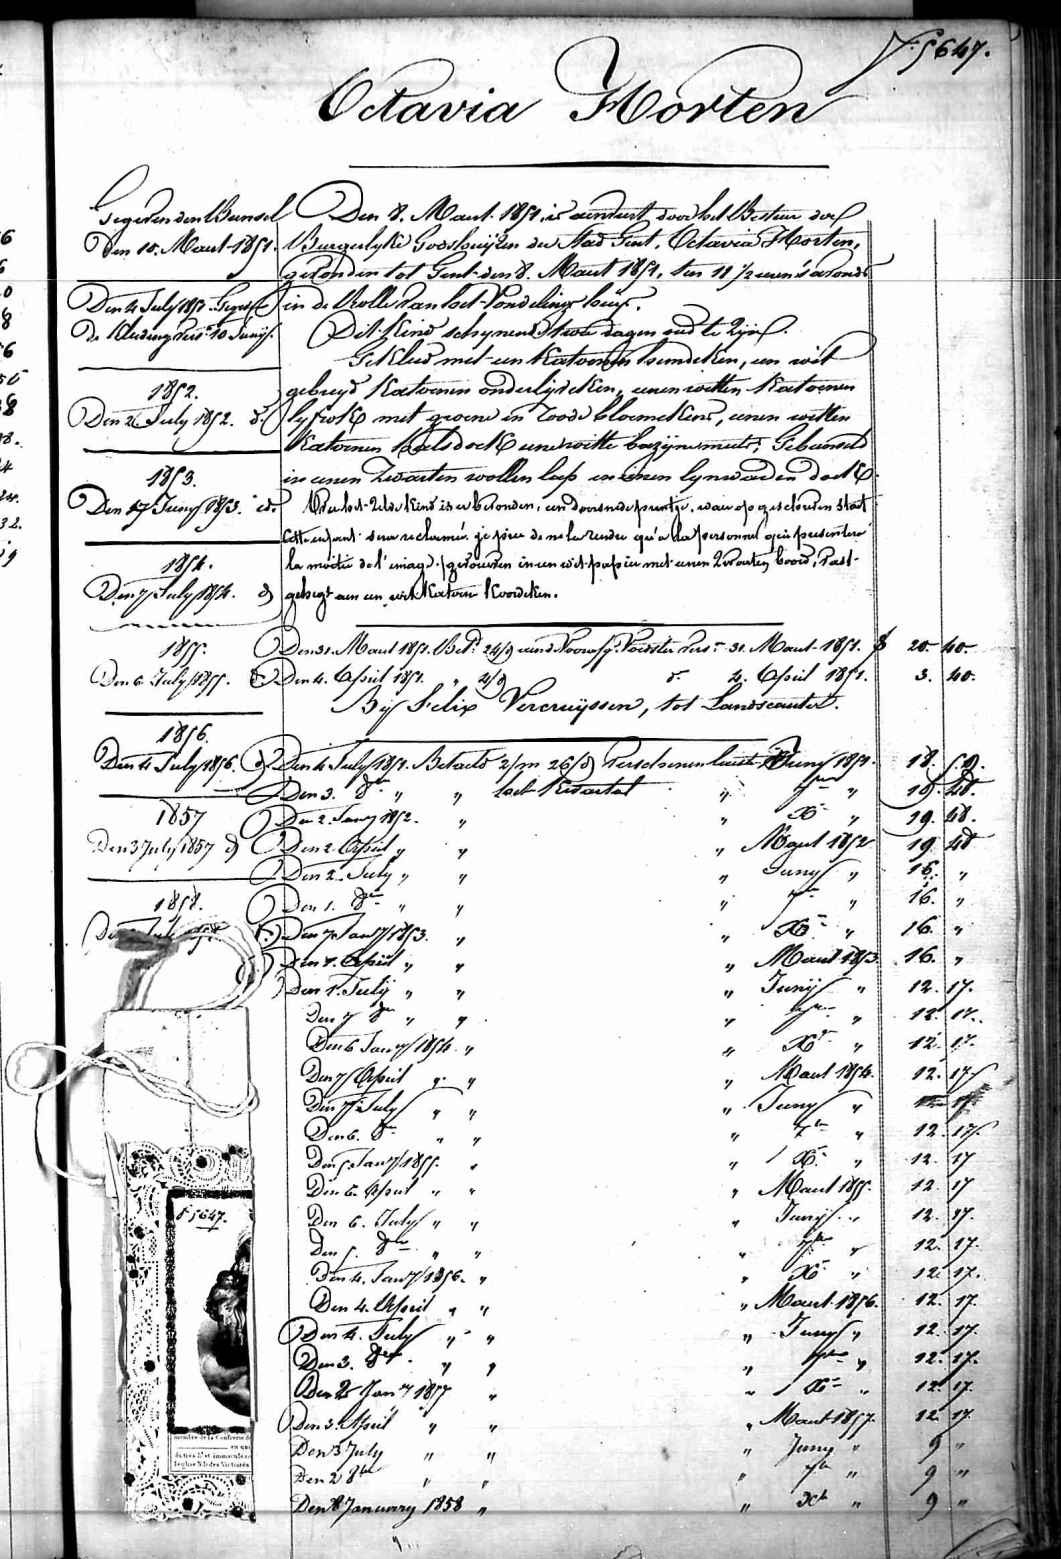 5647.
Octavia Horten
Gegeven den Bunsel
Den 10. Maart 1851.
Den 4 July 1851.
de Kleeding vers. 10 Junij.
1852.
Den 2 July 1852. d.
1853.
Den 17 Juny 1853. id.
1854.
Den 7 July 1854. d
1855.
Den 6 July 1855. d
1856.
Den 4 July 1856. d
1857
Den 3 July 1857 d
1858.
Den 8. Maart 1851, is aenveert door het Bestuer der
Burgerlyke Godshuyzen der stad Gent, Octavia Horten,
gevonden tot Gent den 8. Maart 1851, ten 11 1/2 uren 's avonds
in de Rolle van het Vondelingshuys.
Dit Kind schynende twee dagen oud te zyn.
Gekleed met een Katoenen hemdeken, een wit
gebreyd Katoenen onderlyveken, eenen witten Katoenen
lyfrok met groene en roode bloemekens, eenen witten
Katoenen halsdoek eene witte bazyne muts; Gebunseld
in eenen zwarten wollen lap en eenen lynwaeden doek.
By het zelve Kind is er bevonden, een doorsnede prentje, waer op geschreven staet
cette enfant sera reclamée. je prie de ne la rendre qu'a la personne qui presentera
la moitié de l'image. gevouwen in een wit papier met eenen zwarten boord, vast-
gehegt aen een wit Katoene Koordeken.
Den 31. Maart 1851. Bet. 24/d aen Voorsz. Voedster vers. 31. Maart 1851. f 20. 40.
Den 4. April 1851. " 4/d d. 4. April 1851. 3. 40.
By Felix Vercruyssen, tot Landscauter.
Den 4 July 1851. Betaeld 2/m 26/d verschenen laest Juny 1851. 18. 59.
Den 3. 8er " " het Kwartael " 7er " 19. 48.
Den 2. Jany 1852. " " X " 19. 48.
Den 2. April " " " Maart 1852 19 48
Den 2. July " " " Juny " 16. "
Den 1. 8er " " " 7er " 16. "
Den 7 Jany 1853. " " X " 16. "
Den 1. April " " " Maart 1853. 16. "
Den 1. July " " " Junij " 12. 17.
Den 7 8er " " " 7er " 12. 17.
Den 6 Jany 1854. " " X " 12. 17.
Den 7 April " " " Maart 1854. 12. 17
Den 7 July " " " Juny " 12. 17.
Den 6. 8er " " " 7er " 12. 17.
Den 5 Jany 1855. " " X " 12. 17
Den 6. April " " " Maart 1855. 12. 17
Den 6. July " " " Juny " 12. 17.
Den 5. 8er " " " 7er " 12. 17.
Den 4. Jany 1856. " " X " 12. 17.
Den 4. April " " " Maart 1856. 12. 17.
Den 4. July " " " Juny " 12. 17.
Den 3. 8er " " " 7er " 12. 17.
Den 2 Jany 1857 " " X " 12. 17.
Den 3. April " " " Maart 1857. 12 17.
Den 3 July " " " Juny " 9 "
Den 2 8ber " " " 7er " 9 "
Den 8 January 1858 " " Xb " 9 "
5647.
membre de la Confrérie d